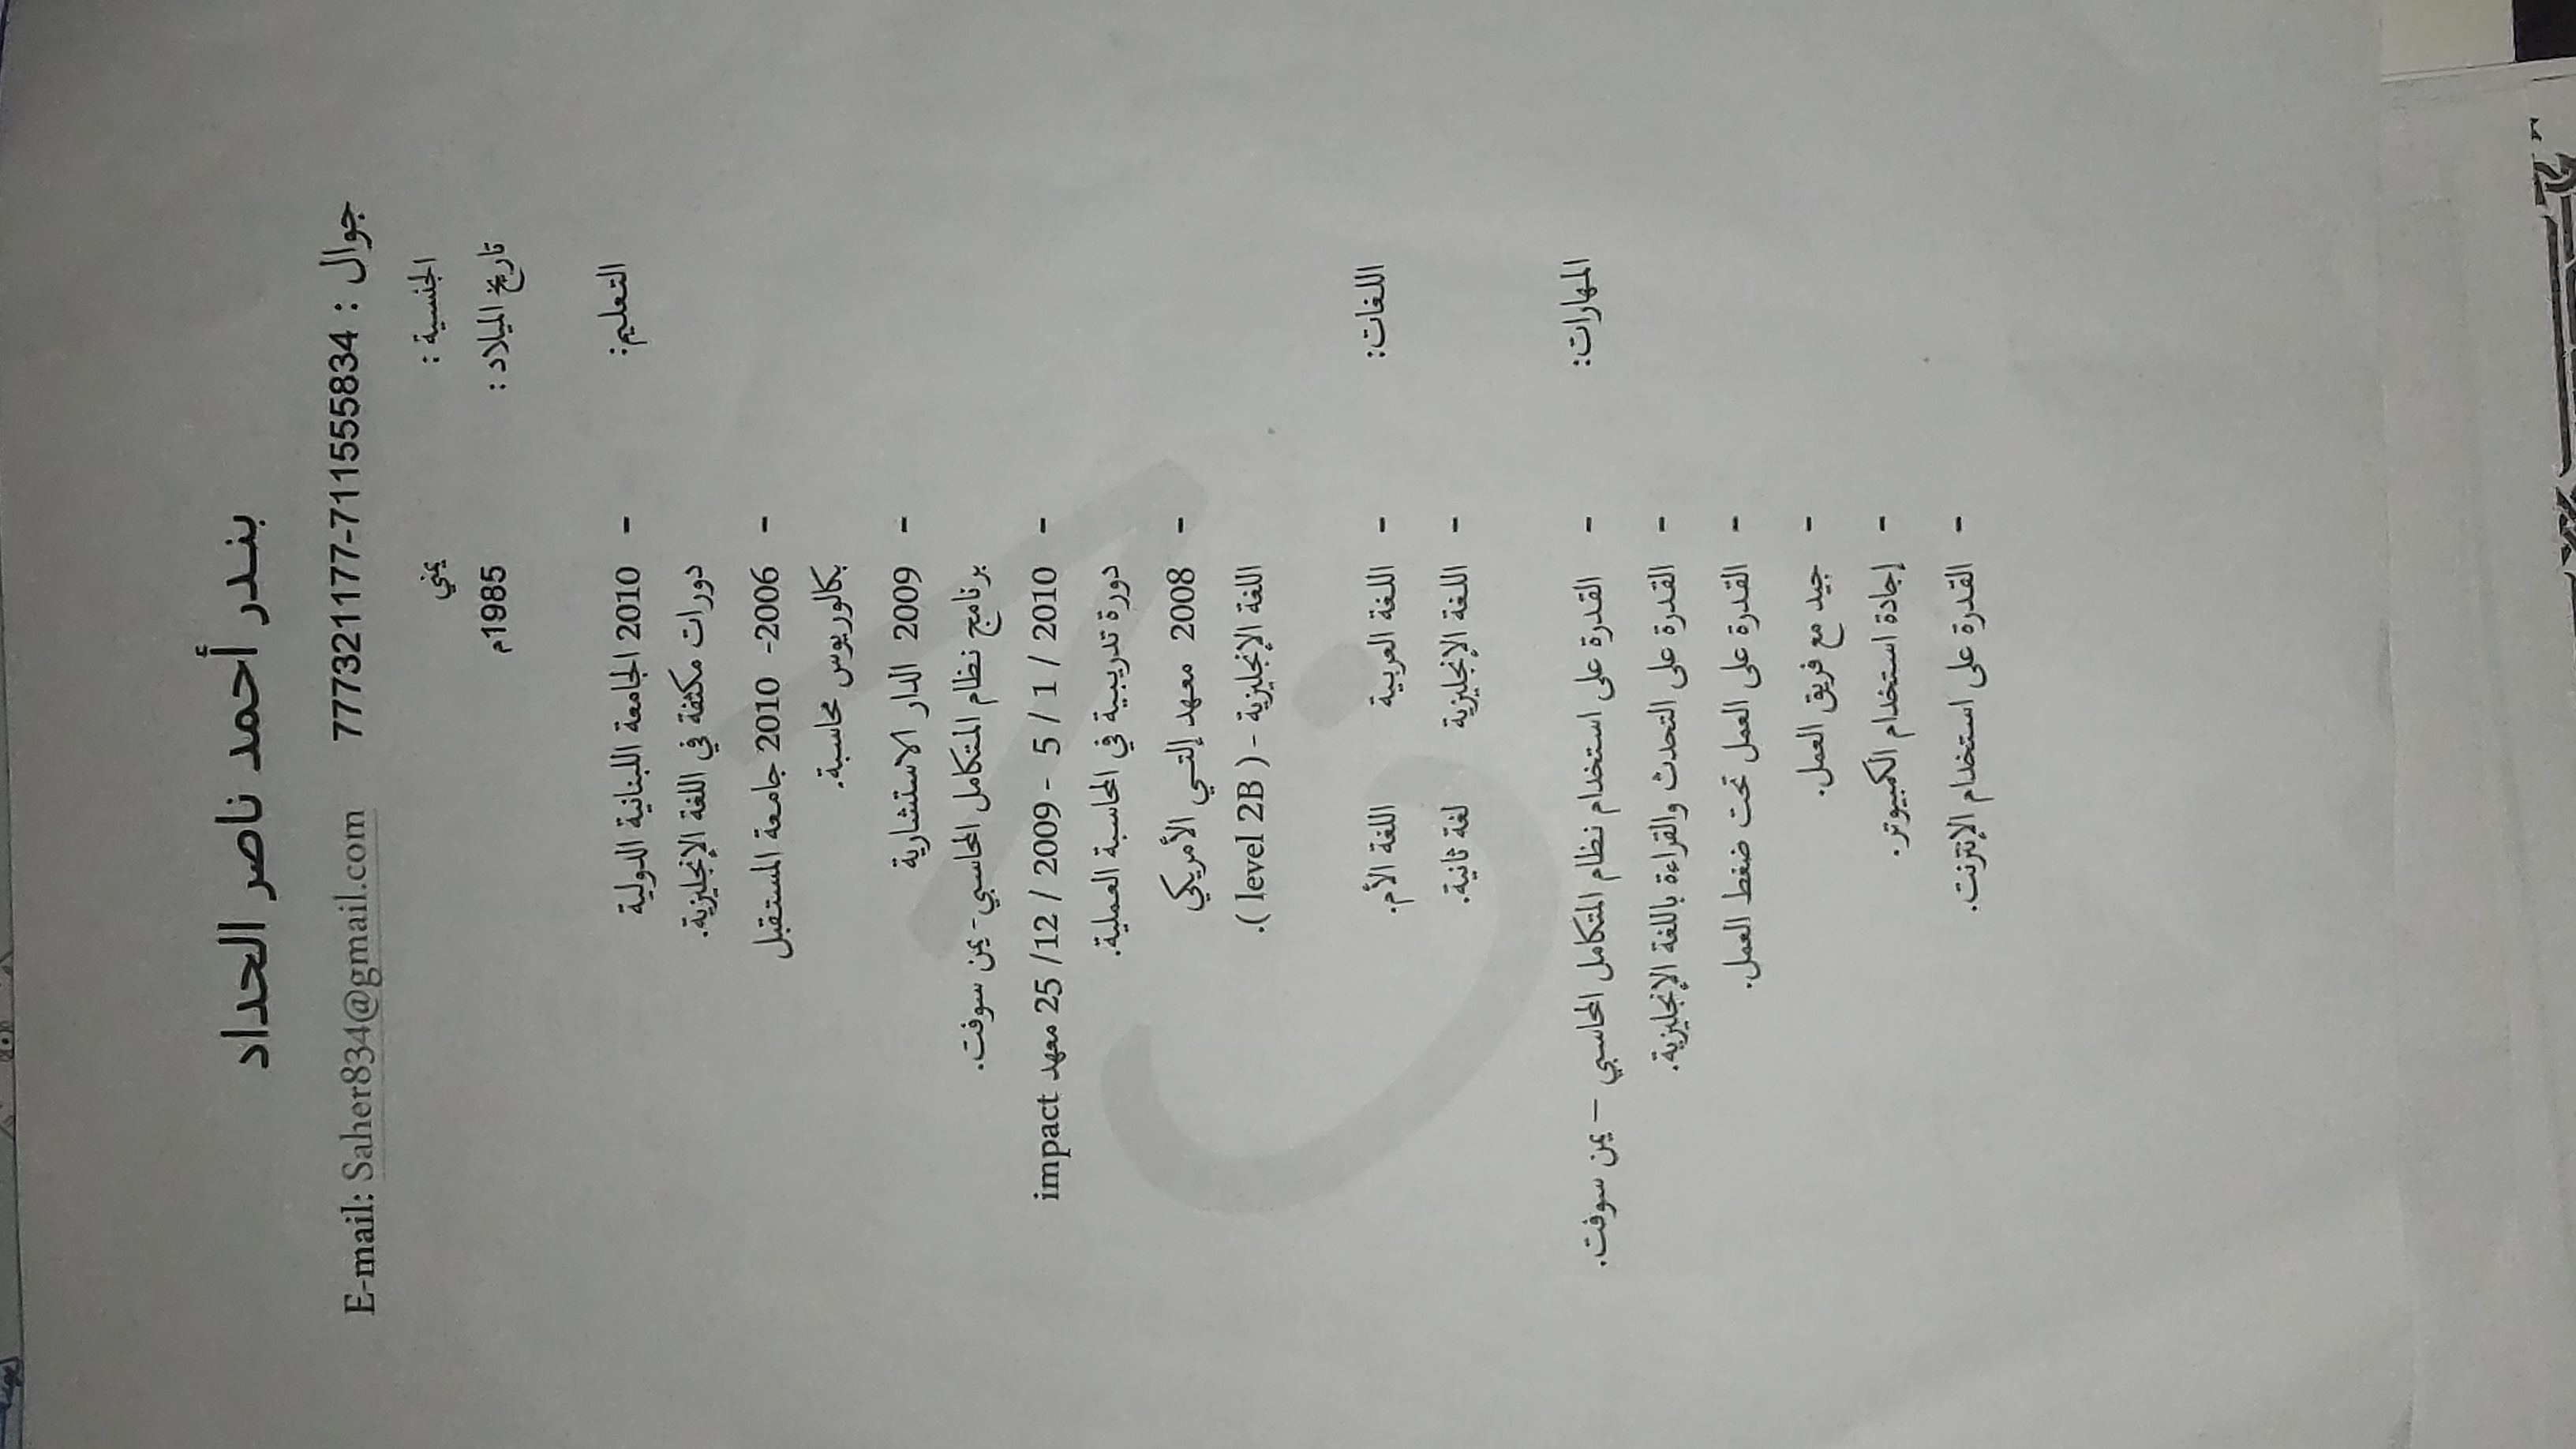 بندر أحمد ناصر الحداد
جوال : 711555834-777321177 E-mail: Saher834@gmail.com
الجنسية : يمني
تاريخ الميلاد : 1985م
التعليم:
- 2010 الجامعة اللبنانية الدولية
دورات مكثفة في اللغة الإنجليزية.
- 2006- 2010 جامعة المستقبل
بكالوريوس محاسبة.
- 2009 الدار الاستشارية
برنامج نظام المتكامل المحاسبي- يمن سوفت.
- 2010 / 1 / 5 - 2009 / 12/ 25 معهد impact
دورة تدريبية في المحاسبة العملية.
- 2008 معهد إلتي الأمريكي
اللغة الإنجليزية – ( level 2B ).
اللغات:
- اللغة العربية اللغة الأم.
- اللغة الإنجليزية لغة ثانية.
المهارات:
- القدرة على استخدام نظام المتكامل المحاسبي – يمن سوفت.
- القدرة على التحدث والقراءة باللغة الإنجليزية.
- القدرة على العمل تحت ضغط العمل.
- جيد مع فريق العمل.
- إجادة استخدام الكمبيوتر.
- القدرة على استخدام الإنترنت.